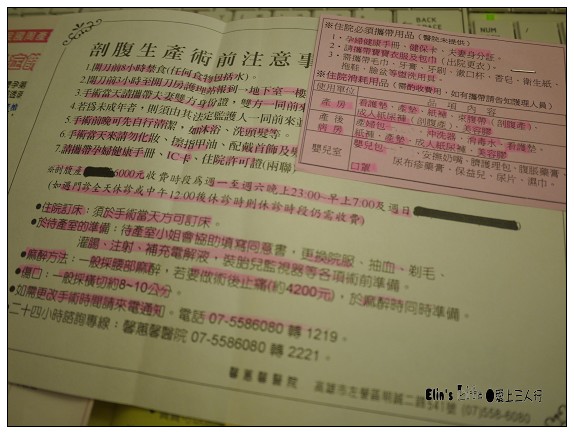 剖腹生產術前注意事
1.開刀前8小時禁食(任何食物包括水)。
2.開刀前3小時至開刀房護理站報到→地下室一樓
3.手術當天請攜帶夫妻雙方身份證，雙方一同前來
4.若為未成年者，則須由其法定監護人一同前來並
5.手術前晚可先自行清潔，如沐浴、洗頭髮等。
6.手術當天來請勿化妝、擦指甲油、配戴首飾及
7.請攜帶孕婦健康手冊、IC卡、住院許可證(兩聯)
※剖腹產 6000元收費時段為週一至週六晚上23:00~早上7:00及週日
(如遇門診全天休診或中午12:00後休診時則休診時段仍需收費)
●住院訂床：須於手術當天方可訂床。
●於待產室的準備：待產室小姐會協助填寫同意書，更換院服、抽血、剃毛、
灌腸、注射、補充電解液、裝胎兒監視器等各項術前準備。
●麻醉方法：一般採腰部麻醉，若要做術後止痛(約4200元)，於麻醉時同時準備。
●傷口：一般採橫切約8~10公分。
●如需更改手術時間請來電通知。電話 07-5586080 轉 1219。
二十四小時諮詢專線：馨蕙馨醫院 07-5586080 轉 2221。
馨蕙馨醫院 高雄市左營區明誠二路541號 (07)558-6080
※住院必須攜帶用品 (醫院未提供)
1、孕婦健康手冊、健保卡、夫妻身分證。
2、請攜帶寶寶衣服及包巾(出院更衣)。
3、需攜帶毛巾、牙膏、牙刷、漱口杯、香皂、衛生紙、
拖鞋、臉盆等盥洗用具。
※住院消耗用品 (需酌收費用，如有攜帶請告知護理人員)
使用單位 品項內容
產房 看護墊、產墊、紙褲、束腹帶(剖腹產)、
成人紙尿褲(剖腹產)、美容膠
產後病房 產婦包、沖洗器、消毒水、看護墊、
紙褲、產墊、成人紙尿褲、美容膠
嬰兒室 嬰兒包、安撫奶嘴、臍護理包、脹氣藥膏
尿布疹藥膏、保益兒、尿片、濕巾。
口罩
BACK
SPACE
NUM
Elin's
愛上三人行